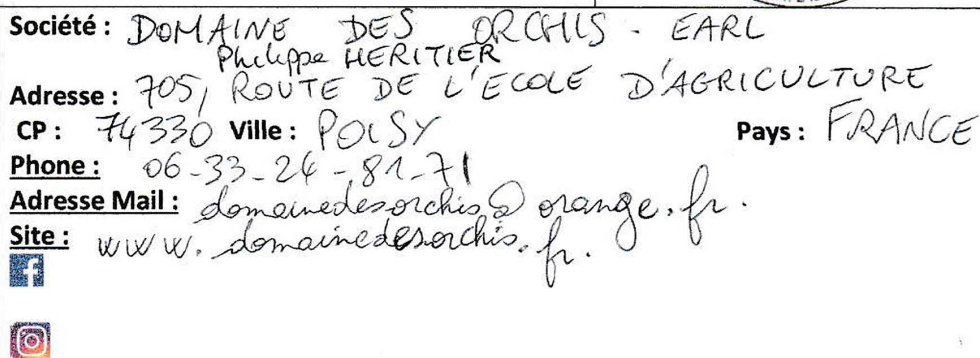 Société : DOMAINE DES ORCHIS - EARL
Philippe HERITIER
Adresse : 705, ROUTE DE L'ECOLE D'AGRICULTURE
CP : 74330 Ville : POISY Pays : FRANCE
Phone : 06-33-24-81-71
Adresse Mail : domainedesorchis@orange.fr.
Site : www.domainedesorchis.fr.